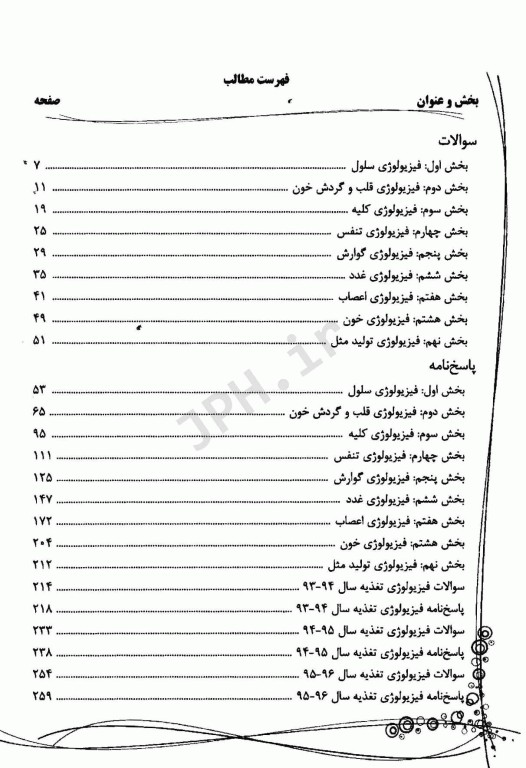 فهرست مطالب
بخش و عنوان صفحه
سوالات
بخش اول: فیزیولوژی سلول ........ ۷
بخش دوم: فیزیولوژی قلب و گردش خون ........ ۱۱
بخش سوم: فیزیولوژی کلیه ........ ۱۹
بخش چهارم: فیزیولوژی تنفس ........ ۲۵
بخش پنجم: فیزیولوژی گوارش ........ ۲۹
بخش ششم: فیزیولوژی غدد ........ ۳۵
بخش هفتم: فیزیولوژی اعصاب ........ ۴۱
بخش هشتم: فیزیولوژی خون ........ ۴۹
بخش نهم: فیزیولوژی تولید مثل ........ ۵۱
پاسخ‌نامه
بخش اول: فیزیولوژی سلول ........ ۵۳
بخش دوم: فیزیولوژی قلب و گردش خون ........ ۶۵
بخش سوم: فیزیولوژی کلیه ........ ۹۵
بخش چهارم: فیزیولوژی تنفس ........ ۱۱۱
بخش پنجم: فیزیولوژی گوارش ........ ۱۲۵
بخش ششم: فیزیولوژی غدد ........ ۱۴۷
بخش هفتم: فیزیولوژی اعصاب ........ ۱۷۲
بخش هشتم: فیزیولوژی خون ........ ۲۰۴
بخش نهم: فیزیولوژی تولید مثل ........ ۲۱۲
سوالات فیزیولوژی تغذیه سال ۹۴-۹۳ ........ ۲۱۴
پاسخ‌نامه فیزیولوژی تغذیه سال ۹۴-۹۳ ........ ۲۱۸
سوالات فیزیولوژی تغذیه سال ۹۵-۹۴ ........ ۲۳۳
پاسخ‌نامه فیزیولوژی تغذیه سال ۹۵-۹۴ ........ ۲۳۸
سوالات فیزیولوژی تغذیه سال ۹۶-۹۵ ........ ۲۵۴
پاسخ‌نامه فیزیولوژی تغذیه سال ۹۶-۹۵ ........ ۲۵۹
JPH.ir